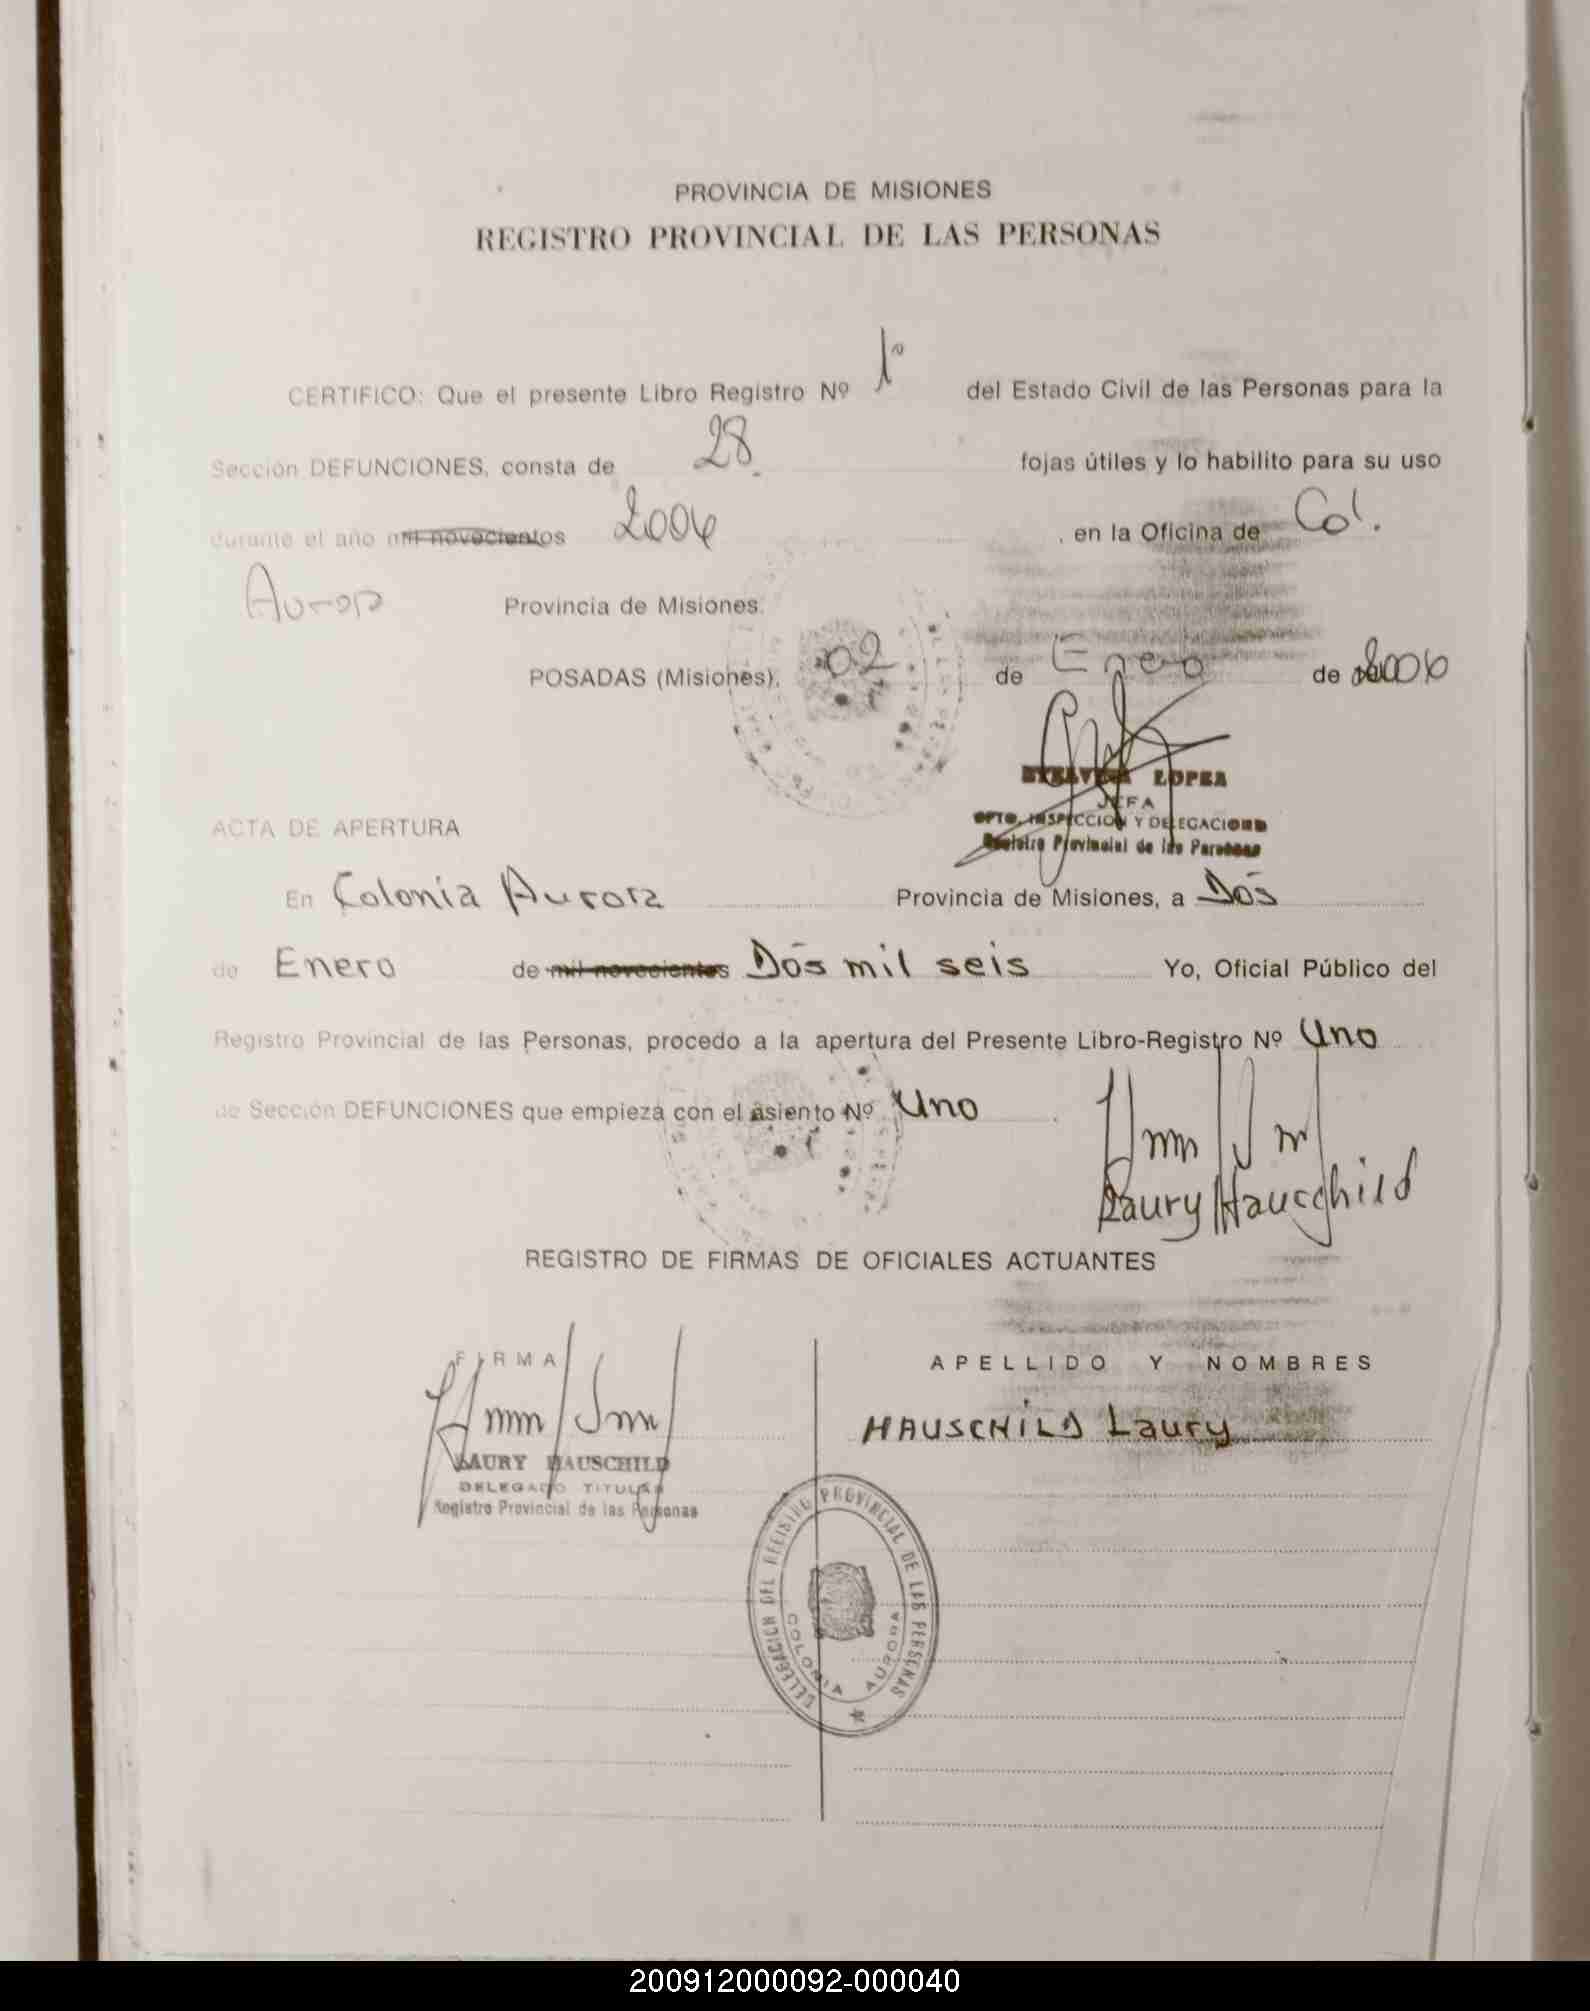 PROVINCIA DE MISIONES
REGISTRO PROVINCIAL DE LAS PERSONAS
CERTIFICO: Que el presente Libro Registro Nº 1º del Estado Civil de las Personas para la
Sección DEFUNCIONES, consta de 28 fojas útiles y lo habilito para su uso
durante el año mil novecientos 2006 , en la Oficina de Col.
Aurora Provincia de Misiones.
POSADAS (Misiones), 02 de Enero de 2006
LOPEZ
JEFA
DPTO. INSPECCION Y DELEGACIONES
Registro Provincial de las Personas
ACTA DE APERTURA
En Colonia Aurora Provincia de Misiones, a Dos
de Enero de mil novecientos Dos mil seis Yo, Oficial Público del
Registro Provincial de las Personas, procedo a la apertura del Presente Libro-Registro Nº Uno
de Sección DEFUNCIONES que empieza con el asiento Nº Uno .
Laury Hauschild
REGISTRO DE FIRMAS DE OFICIALES ACTUANTES
FIRMA APELLIDO Y NOMBRES
HAUSCHILD Laury
LAURY HAUSCHILD
DELEGADO TITULAR
Registro Provincial de las Personas
DELEGACION DEL REGISTRO PROVINCIAL DE LAS PERSONAS
COLONIA AURORA
200912000092-000040